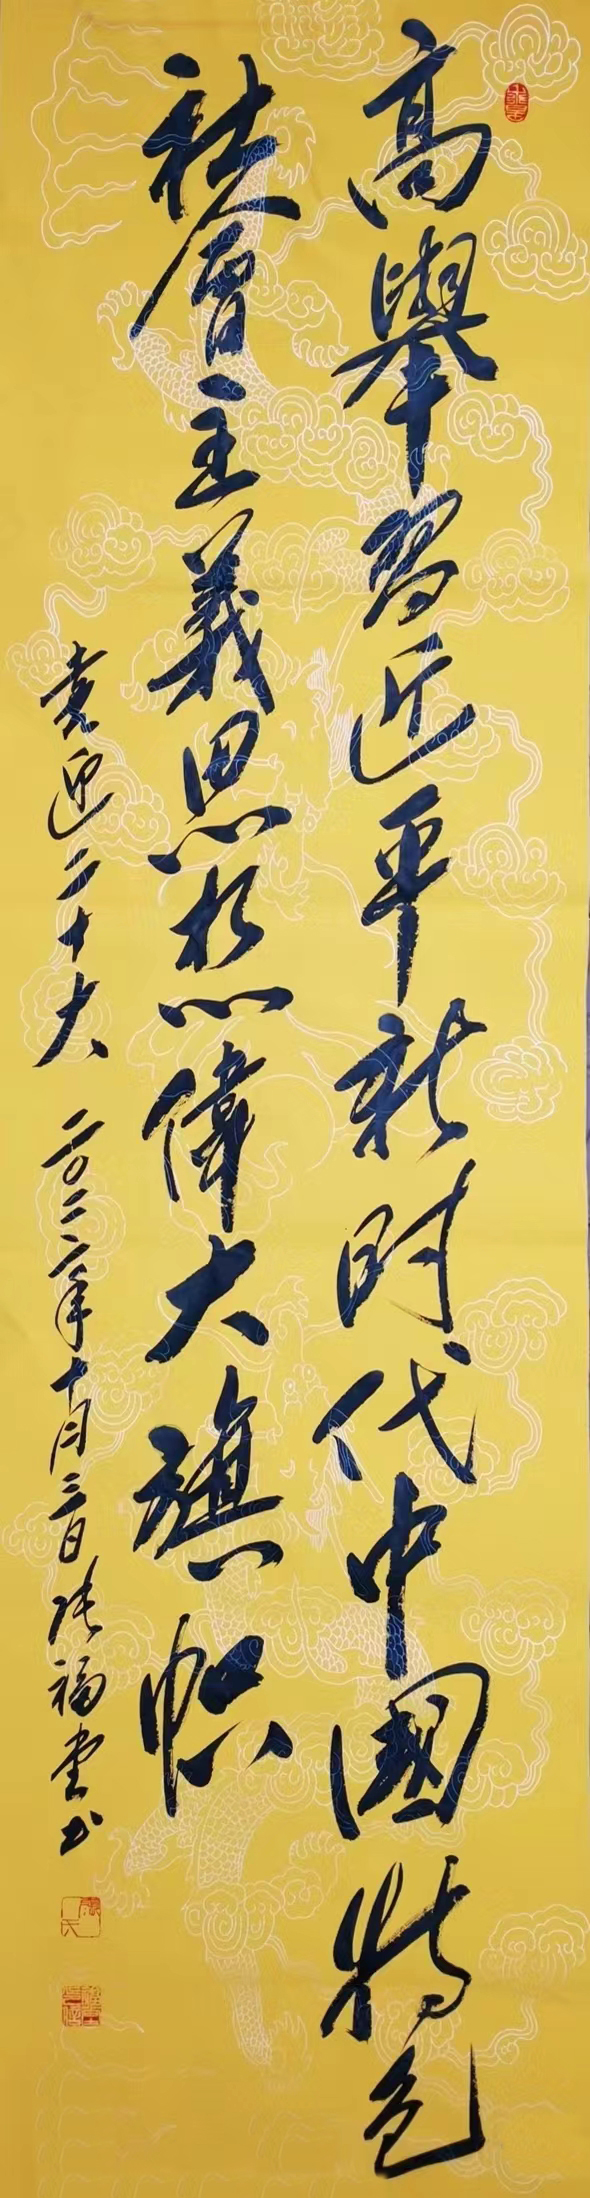 高舉習近平新时代中国特色
社會主義思想偉大旗帜
喜迎二十大 二〇二二年十月三日 张福堂书